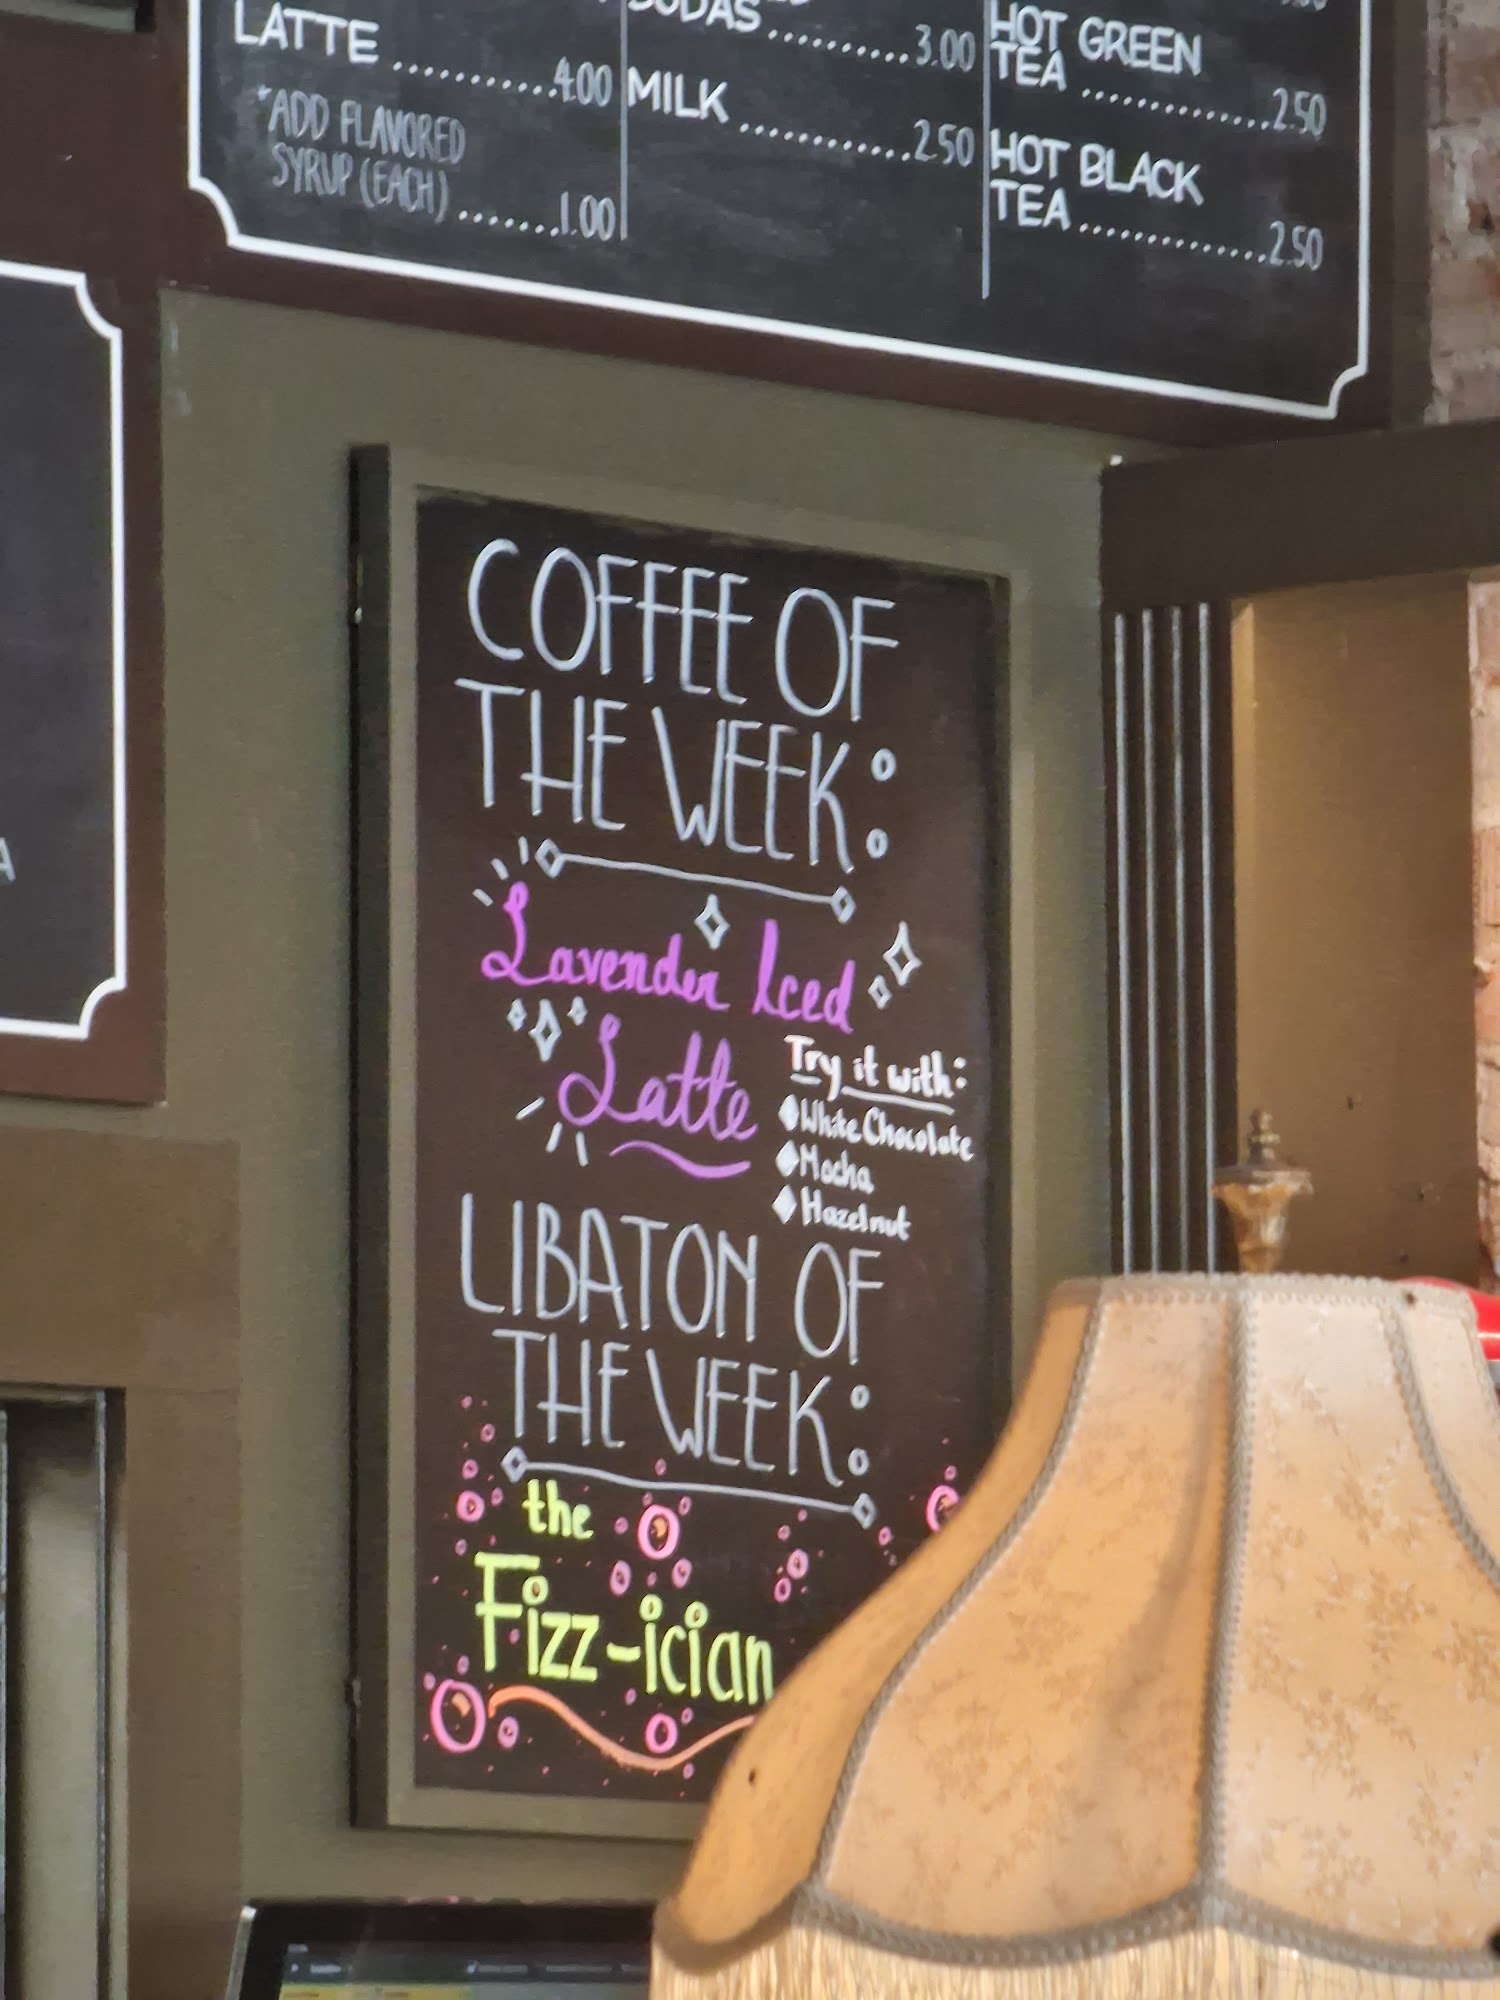 LATTE ............4.00
*ADD FLAVORED
SYRUP (EACH) .......1.00
SODAS ...........3.00
MILK .............2.50
HOT GREEN
TEA ..............2.50
HOT BLACK
TEA ..............2.50
COFFEE OF
THE WEEK:
Lavender Iced
Latte
Try it with:
White Chocolate
Mocha
Hazelnut
LIBATON OF
THE WEEK:
the
Fizz-ician